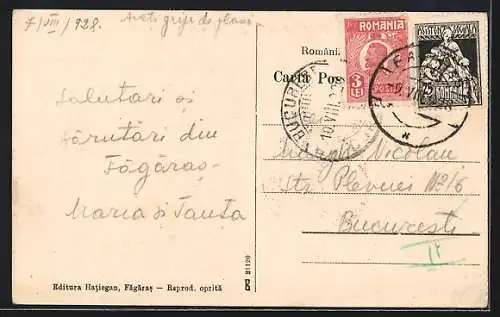 7/VIII/928.
Salutari și
sărutări din
Făgăraș
Maria și Tanța
Editura Hațiegan, Făgăraș — Reprod. oprită
B 1120
Români
Carta Pos
ROMANIA
3 LEI
BUCURE
10 VIII
Nicolau
Str. Plevnei No 16
București